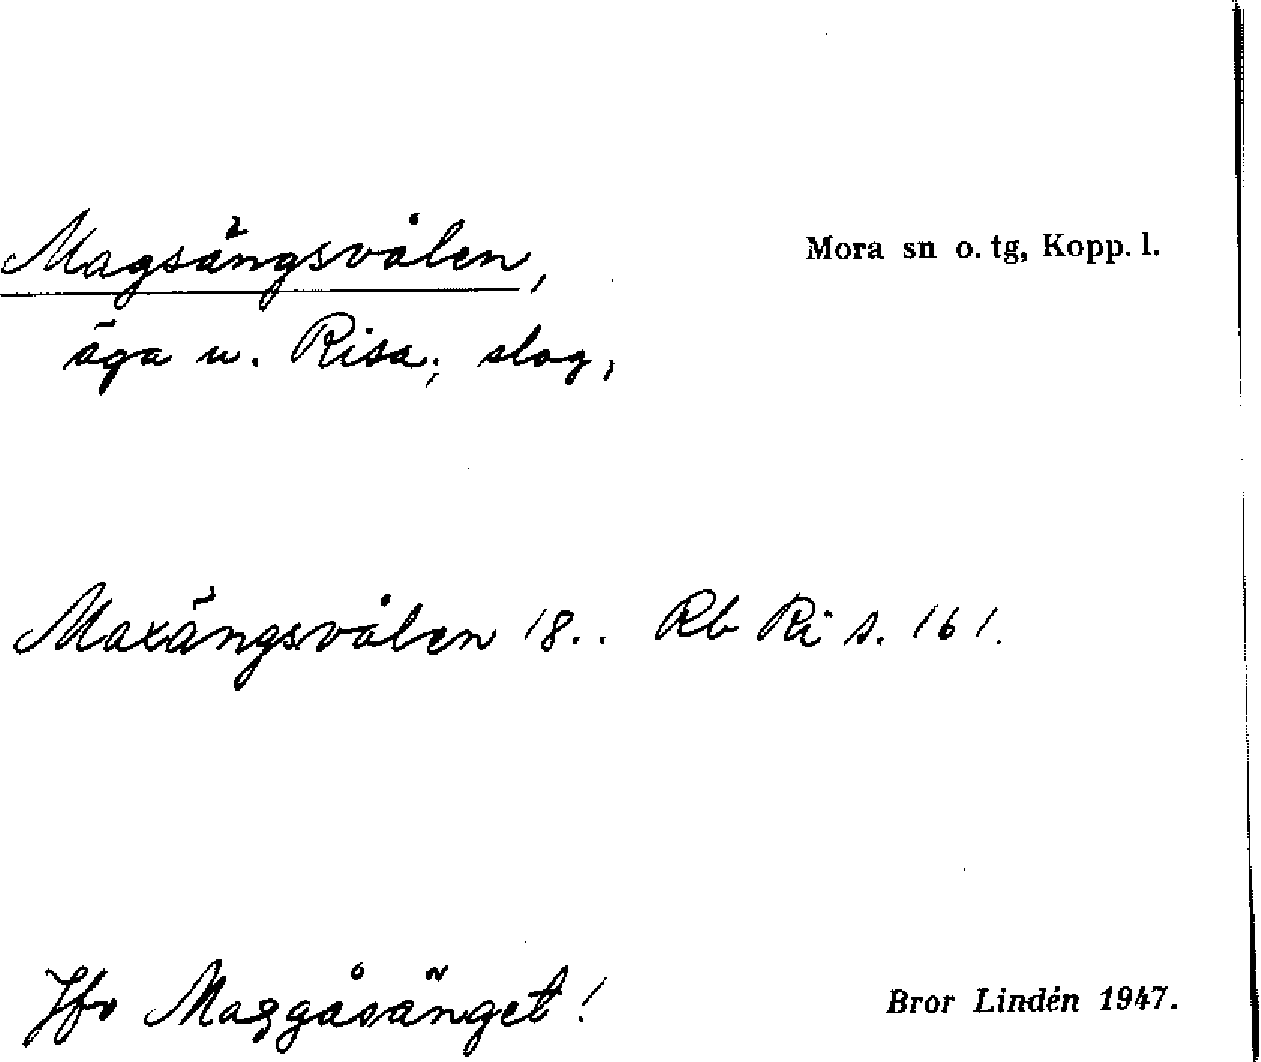 Magsängsvålen,
Mora sn o. tg, Kopp. l.
äga u. Risa; slog,
Maxängsvålen 18.. Rb Ri s. 161.
Jfr Maggåsänget!
Bror Lindén 1947.